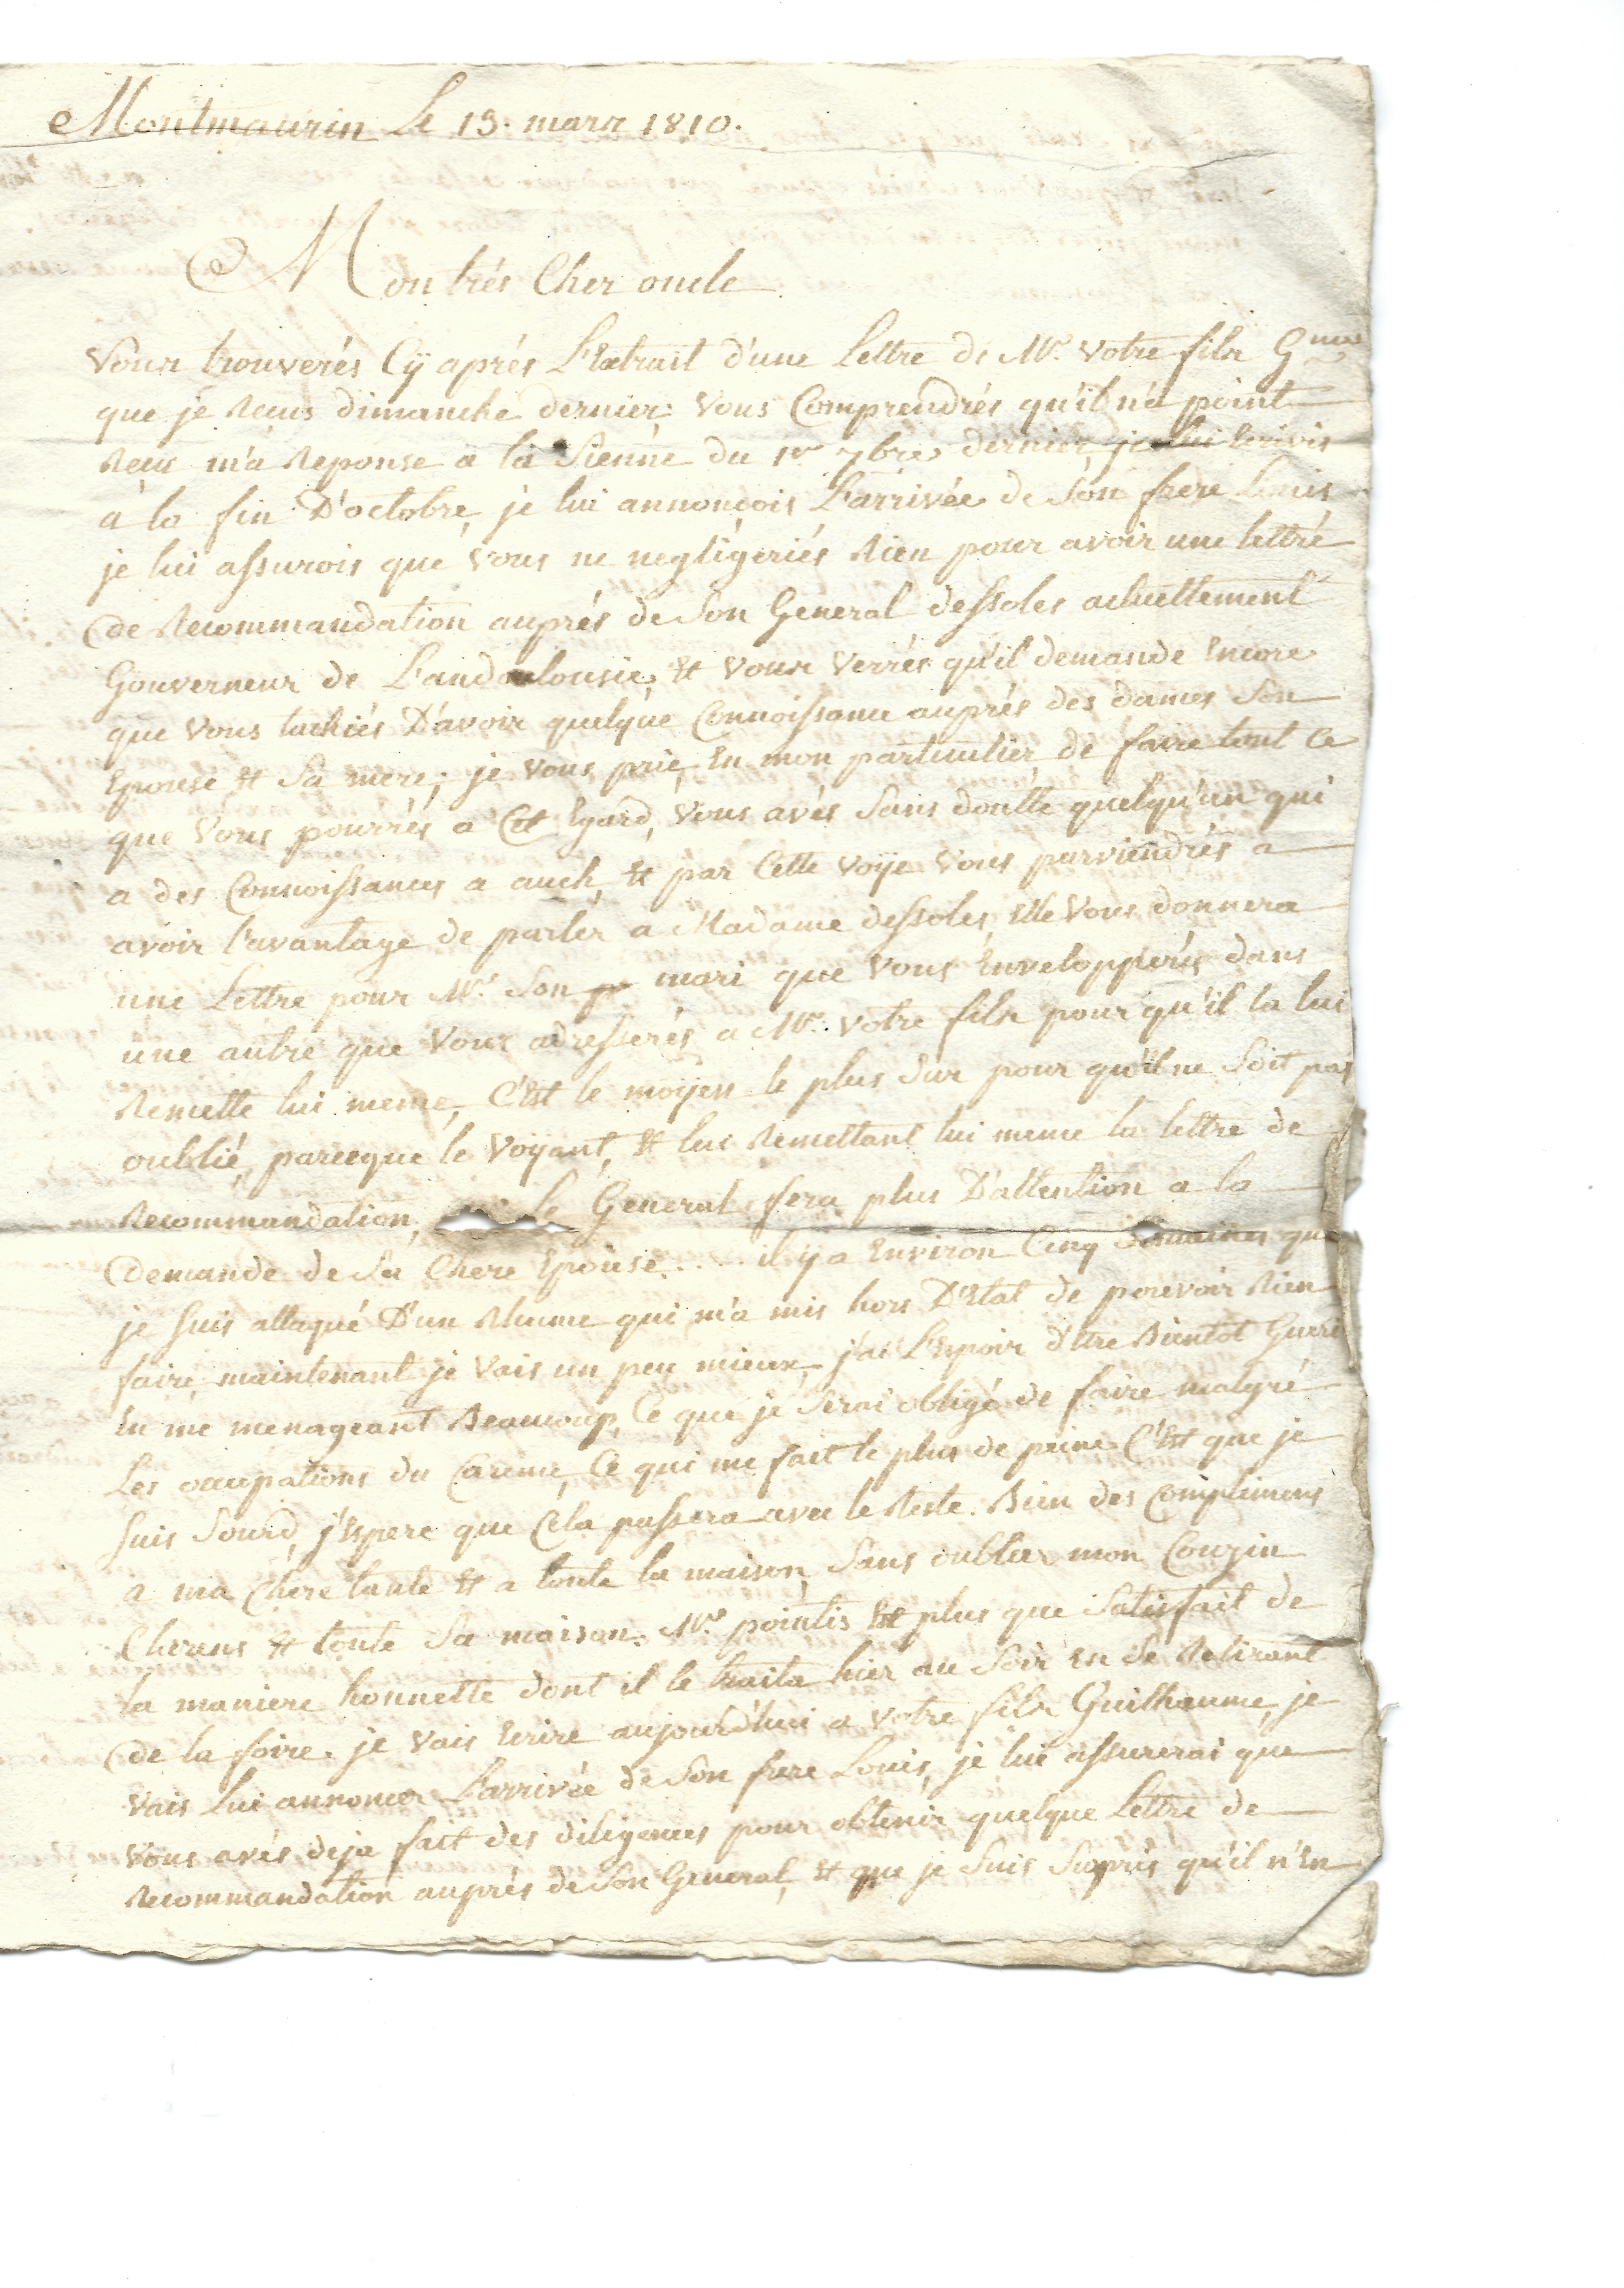 Montmaurin Le 13. mars 1810.
Mon trés Cher oncle
Vous trouverés Cÿ aprés L'Extrait d'une Lettre de Mr. votre fils Gme
que je Reçus dimanche dernier; vous Comprendrés qu'il n'a point
Reçu m'a Reponse a la Sienne du 1er 7bre dernier, je lui Ecrivis
a la fin D'octobre, je lui annonçois L'arrivée de Son frere Louis
je lui assurois que vous ne negligeriés Rien pour avoir une lettre
de Recommandation auprés de Son General dessoles actuellement
Gouverneur de L'andalousie, Et vous verrés qu'il demande Encore
que vous tachiés D'avoir quelque Connoissance auprés des dames Son
Epouse Et Sa mere; je vous prie, En mon particulier de faire tout Ce
que vous pourrés a Cet Egard, vous avés Sans doutte quelqu'un qui
a des Connoissances a auch, Et par Cette voÿe vous parviendrés a
avoir l'avantage de parler a Madame dessoles, Elle vous donnera
une Lettre pour Mr. Son mari que vous Envelopperés dans
une autre que vous adresserés a Mr. votre fils pour qu'il la lui
Remette lui meme, C'Est le moÿen le plus Sur pour qu'il ne Soit pas
oublié, parceque le Voÿant, Et lui Remettant lui meme la lettre de
Recommandation, le General fera plus D'attention a la
demande de Sa Chere Epouse..... il ÿ a Environ Cinq Semaines que
je suis attaqué D'un Rhume qui m'a mis hors D'Etat de pouvoir Rien
faire, maintenant je vais un peu mieux, j'ai L'Espoir d'Etre Bientot Gueri
En me menageant Beaucoup, Ce que je Serai obligé de faire malgré
Les occupations du Careme, Ce qui me fait le plus de peine C'Est que je
suis Sourd, j'Espere que Cela passera avec le Reste. Bien des Complimens
a ma Chere tante Et a toute la maison, Sans oublier mon Couzin
Et toute Sa maison. Mr. pointis Est plus que Satisfait de
la maniere honnette dont il le traita hier au Soir En Se Retirant
de la foire. je vais Ecrire aujourd'hui a votre fils Guilhaume, je
vais Lui annoncer L'arrivée de Son frere Louis, je lui assurerai que
vous avés deja fait des diligences pour obtenir quelque Lettre de
Recommandation auprés de Son General, Et que je Suis Surpris qu'il n'En